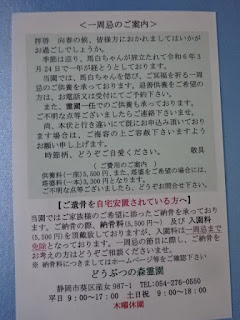 <一周忌のご案内>
拝啓 向春の候、皆様方におかれましてはいかが
お過ごしでしょうか。
季節は巡り、馬白ちゃんが旅立たれて令和6年3
月24日で一年が経とうとしております。
当園では、馬白ちゃんを偲び、ご冥福を祈る一周
忌のご供養を承っております。忌善供養をご希望の
方は、お電話又は受付にてご予約下さい。
また、霊園一任でのご供養も承っております。
ご不明な点等ございましたらご連絡下さいませ。
尚、本状と行き違いにて既にお申込み頂いており
ます場合は、ご海容の上ご容赦下さいますようお
願い申し上げます。
時節柄、どうぞご自愛ください。 敬具
(ご費用のご案内)
供養料(一座)5,500円、また、塔婆をご希望の場合には、
塔婆料(一本)3,300円となります。
ご不明な点等ございましたら、どうぞご連絡下さいませ。
【ご遺骨を自宅安置されている方へ】
当園ではご家族様のご希望に添ったご納骨を承っており
ます。ご納骨の際、納骨料(5,500円~) 及び 入園料
(5,500円)を頂戴致しておりますが、入園料は一周忌まで
免除となっております。一周忌の節目に際し、ご納骨を
お考えの方はどうぞご相談くださいませ。
※ 納骨料につきましてはホームページ等をご確認下さい
どうぶつの森霊園
静岡市葵区産女987-1 TEL:054-276-0550
平日 9:00~17:00 土日祝 9:00~18:00
木曜休園